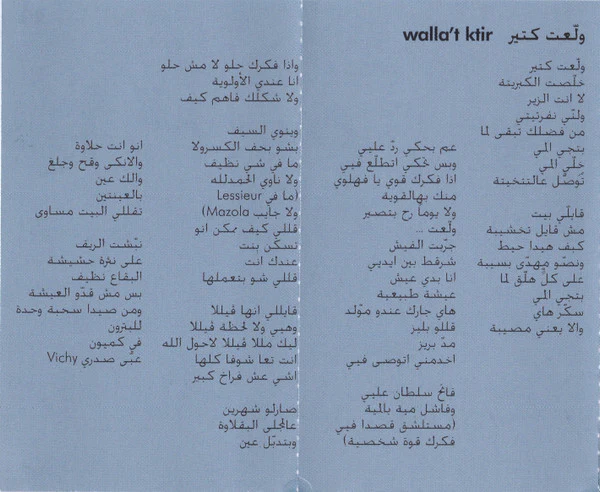 ولّعت كتير walla't ktir
ولّعت كتير
خلّصت الكبريتة
لا انت الزير
ولنّي نفرتيتي
من فضلك تبقى لما
بتجي المي
خلّي المي
توصّل عالتتخيتة
قابلّي بيت
مش قابل تخشيبة
كيف هيدا حيط
ونصّو مهدّي بسيبة
على كلّ هلّق لما
بتجي المي
سكّر هاي
والا يعني مصيبة
عم بحكي ردّ عليي
وبس تحكي اتطلّع فيي
اذا فكرك قوي يا فهلوي
منك بهالقوية
ولا يوماً رح بتصير
ولّعت ...
جرّبت الفيش
شرقط بين ايديي
انا بدي عيش
عيشة طبيعية
هاي جارك عندو مولّد
قللو بليز
مدّ بريز
اخدمني اتوصى فيي
فاتح سلطان عليي
وفاشل مية بالمية
(مستلشق قصدا فيي
فكرك قوة شخصية)
واذا فكرك حلو لا مش حلو
انا عندي الأولوية
ولا شكلك فاهم كيف
وينوي السيف
بشو بحف الكسرولا
ما في شي نظيف
ولا ناوي الحمدلله
(ما في Lessieur
ولا جايب Mazola)
قللي كيف ممكن انو
تسكن بنت
عندك انت
قللي شو بتعملها
قابللي انها ڤيللا
وهيي ولا لحظة ڤيللا
ليك مللا ڤيللا لاحول الله
انت تعا شوفا كلها
اشي عش فراخ كبير
صارلو شهرين
عالمجلى البقلاوة
وبتدبّل عين
انو انت حلاوة
والانكى وقح وجلغ
والك عين
بالعينتين
تقللي البيت مساوى
نبّشت الريف
على نتزة حشيشة
البقاع نظيف
بس مش قدّو العيشة
ومن صيدا سحبة وحدة
للبترون
في كميون
عبّى صدري Vichy